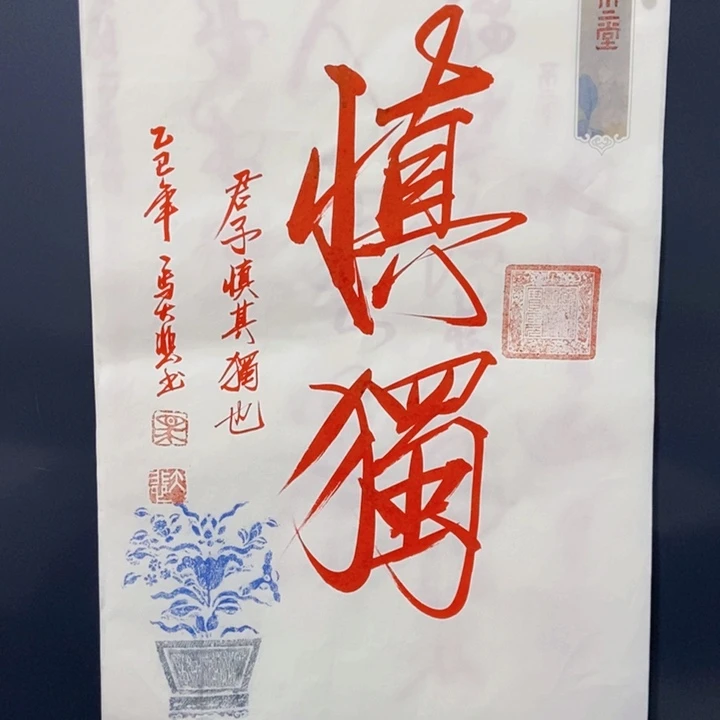 慎獨
君子慎其獨也
乙巳年 馬大